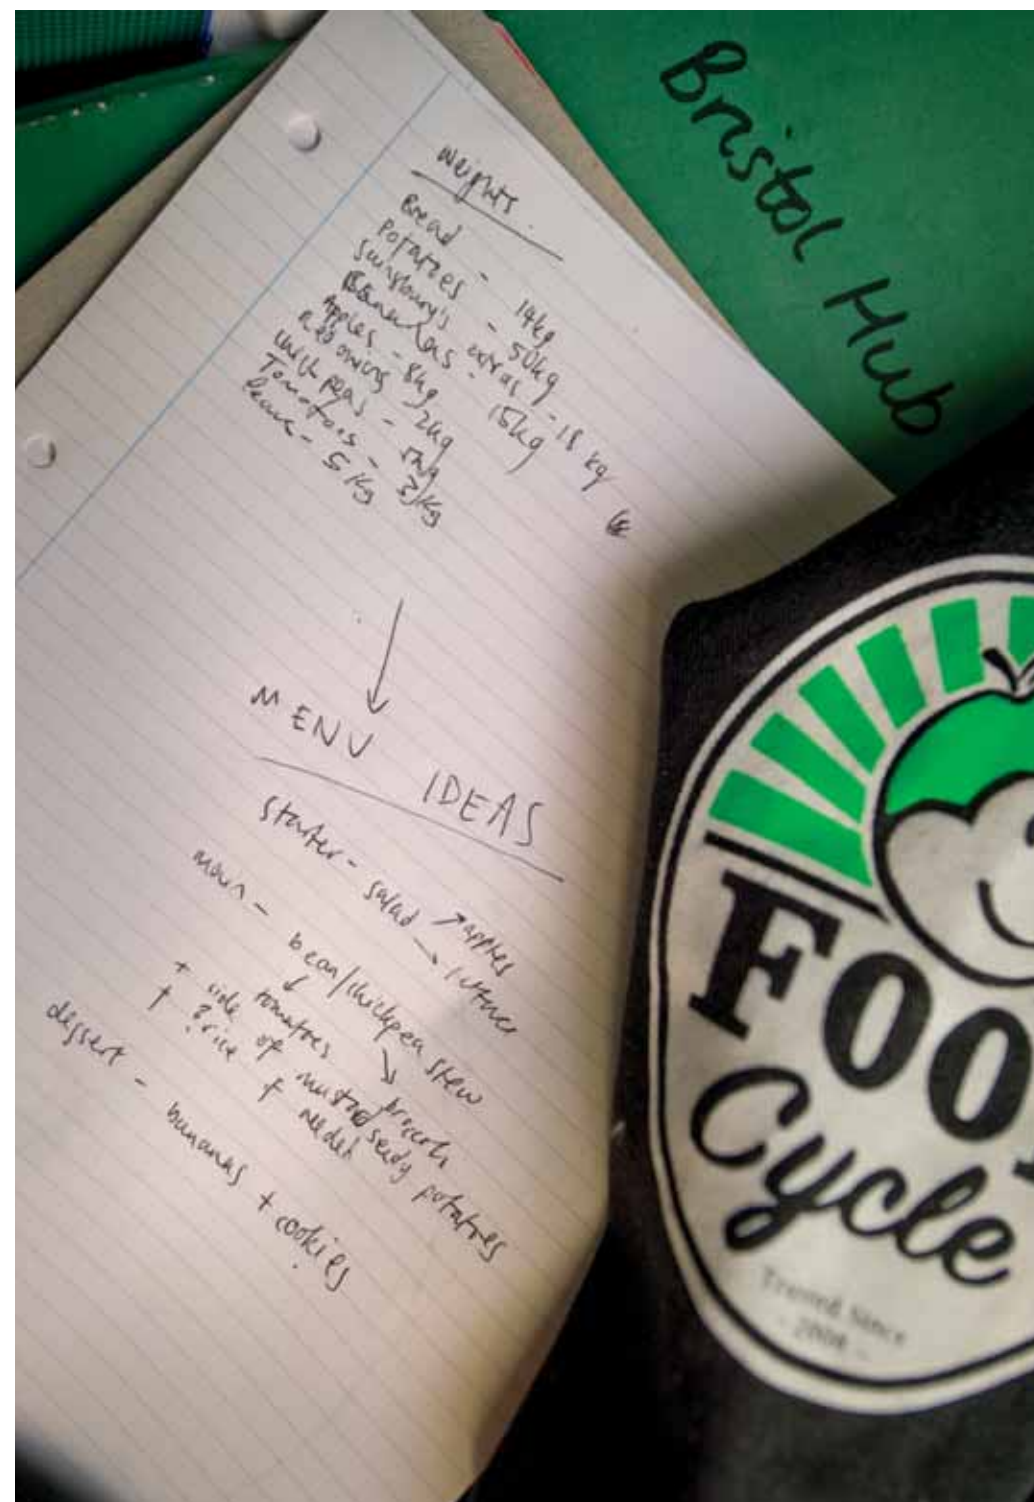 Bristol Hub
Weights
Bread - 14kg
Potatoes - 50kg
Sainsbury's extras - 18 kg
Bananas - 15kg
Apples - 8kg
Red onions 2kg
Chickpeas - 5kg
Tomatoes - 3kg
Pears - 5 kg
MENU IDEAS
Starter - salad apples
lettuce
main - bean/chickpea stew
tomatoes broccoli
+ side of mustard seedy potatoes
+ ? rice + needed
dessert - bananas + cookies
FOO
Cycle
Trusted Since
- 2008 -